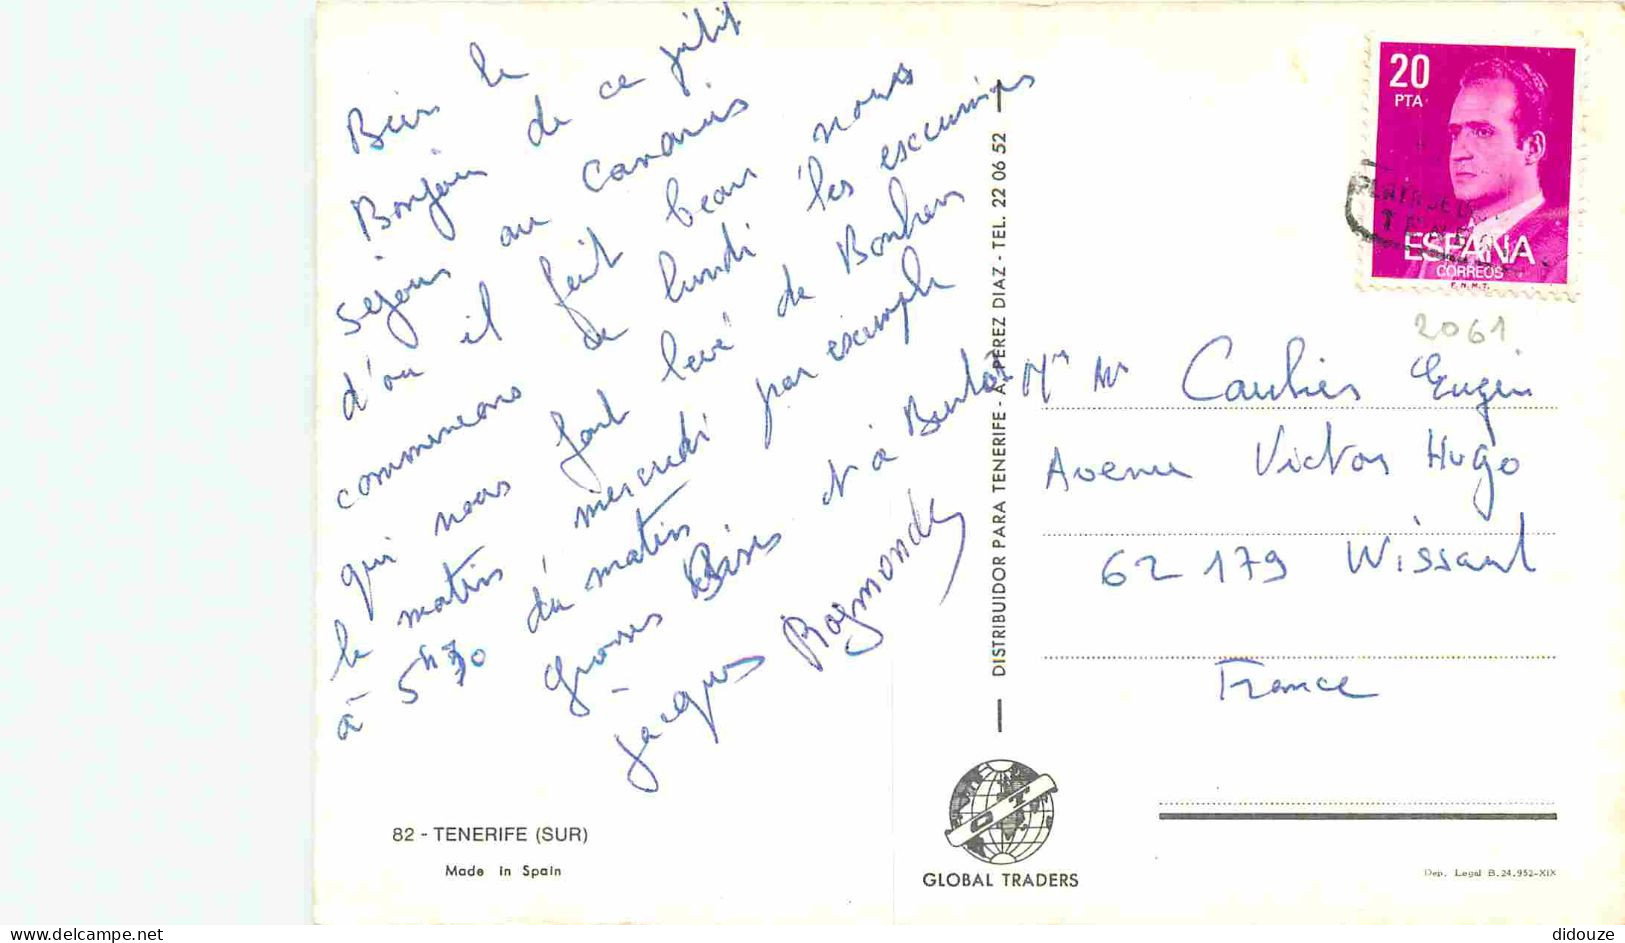 Bien le
Bonjour de ce petit
séjour au canaries
d'ou il fait beau nous
commencons de lundi les excursions
qui nous font levé de Bonheur
le matin mercredi par exemple
à 5h30 du matin
Grosses Bises et à Bientôt
jacques Raymonde
82 - TENERIFE (SUR)
Made in Spain
DISTRIBUIDOR PARA TENERIFE - A. PEREZ DIAZ - TEL. 22 06 52
GT
GLOBAL TRADERS
20
PTA
ESPAÑA
CORREOS
F.N.M.T.
2061
Mr Caulier Eugen
Avenue Victor Hugo
62179 Wissant
France
Dep. Legal B.24.952-XIX
delcampe.net
didouze